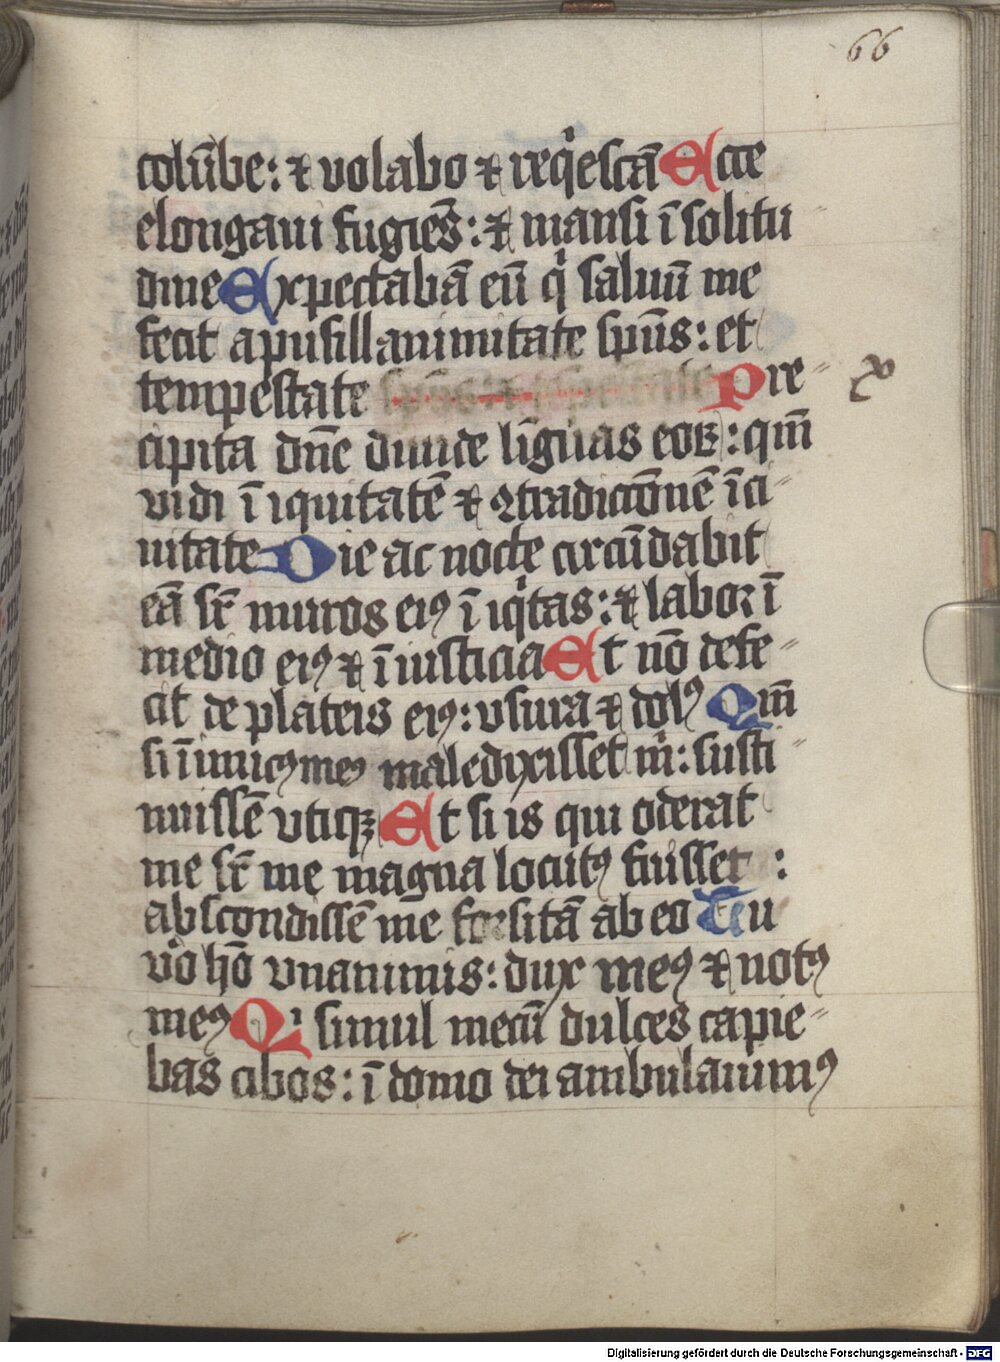 66
colūbe: ⁊ volabo ⁊ reqͥescā Ecce
elongaui fugiēs: ⁊ mansi ī solitu
dine Expectabā eū qͥ saluū me
fecit a pusillanimitate spūs: et
tempestate Pre-
cipita dn̄e diuide līguas eoꝝ: qm̄
vidi ī iquitatē ⁊ ꝯtradiccōnē ī ci-
uitate Die ac nocte circūdabit
eā sr̄ muros eiꝰ ī iqͥtas: ⁊ labor ī
medio eiꝰ ⁊ ī iusticia Et nō defe-
cit de plateis eiꝰ: vsura ⁊ dolꝰ Qm̄
si īimicꝰ meꝰ maledixisset m̄: susti-
nuissē vtiqꝫ Et si is qui oderat
me sr̄ me magna locutꝰ fuisset :
abscondissē me forsitā ab eo Tu
vͦo hō vnanimis: dux meꝰ ⁊ notꝰ
meꝰ Qi simul mecū dulces capie-
bas cibos: ī domo dei ambulauimꝰ
Digitalisierung gefördert durch die Deutsche Forschungsgemeinschaft - DFG